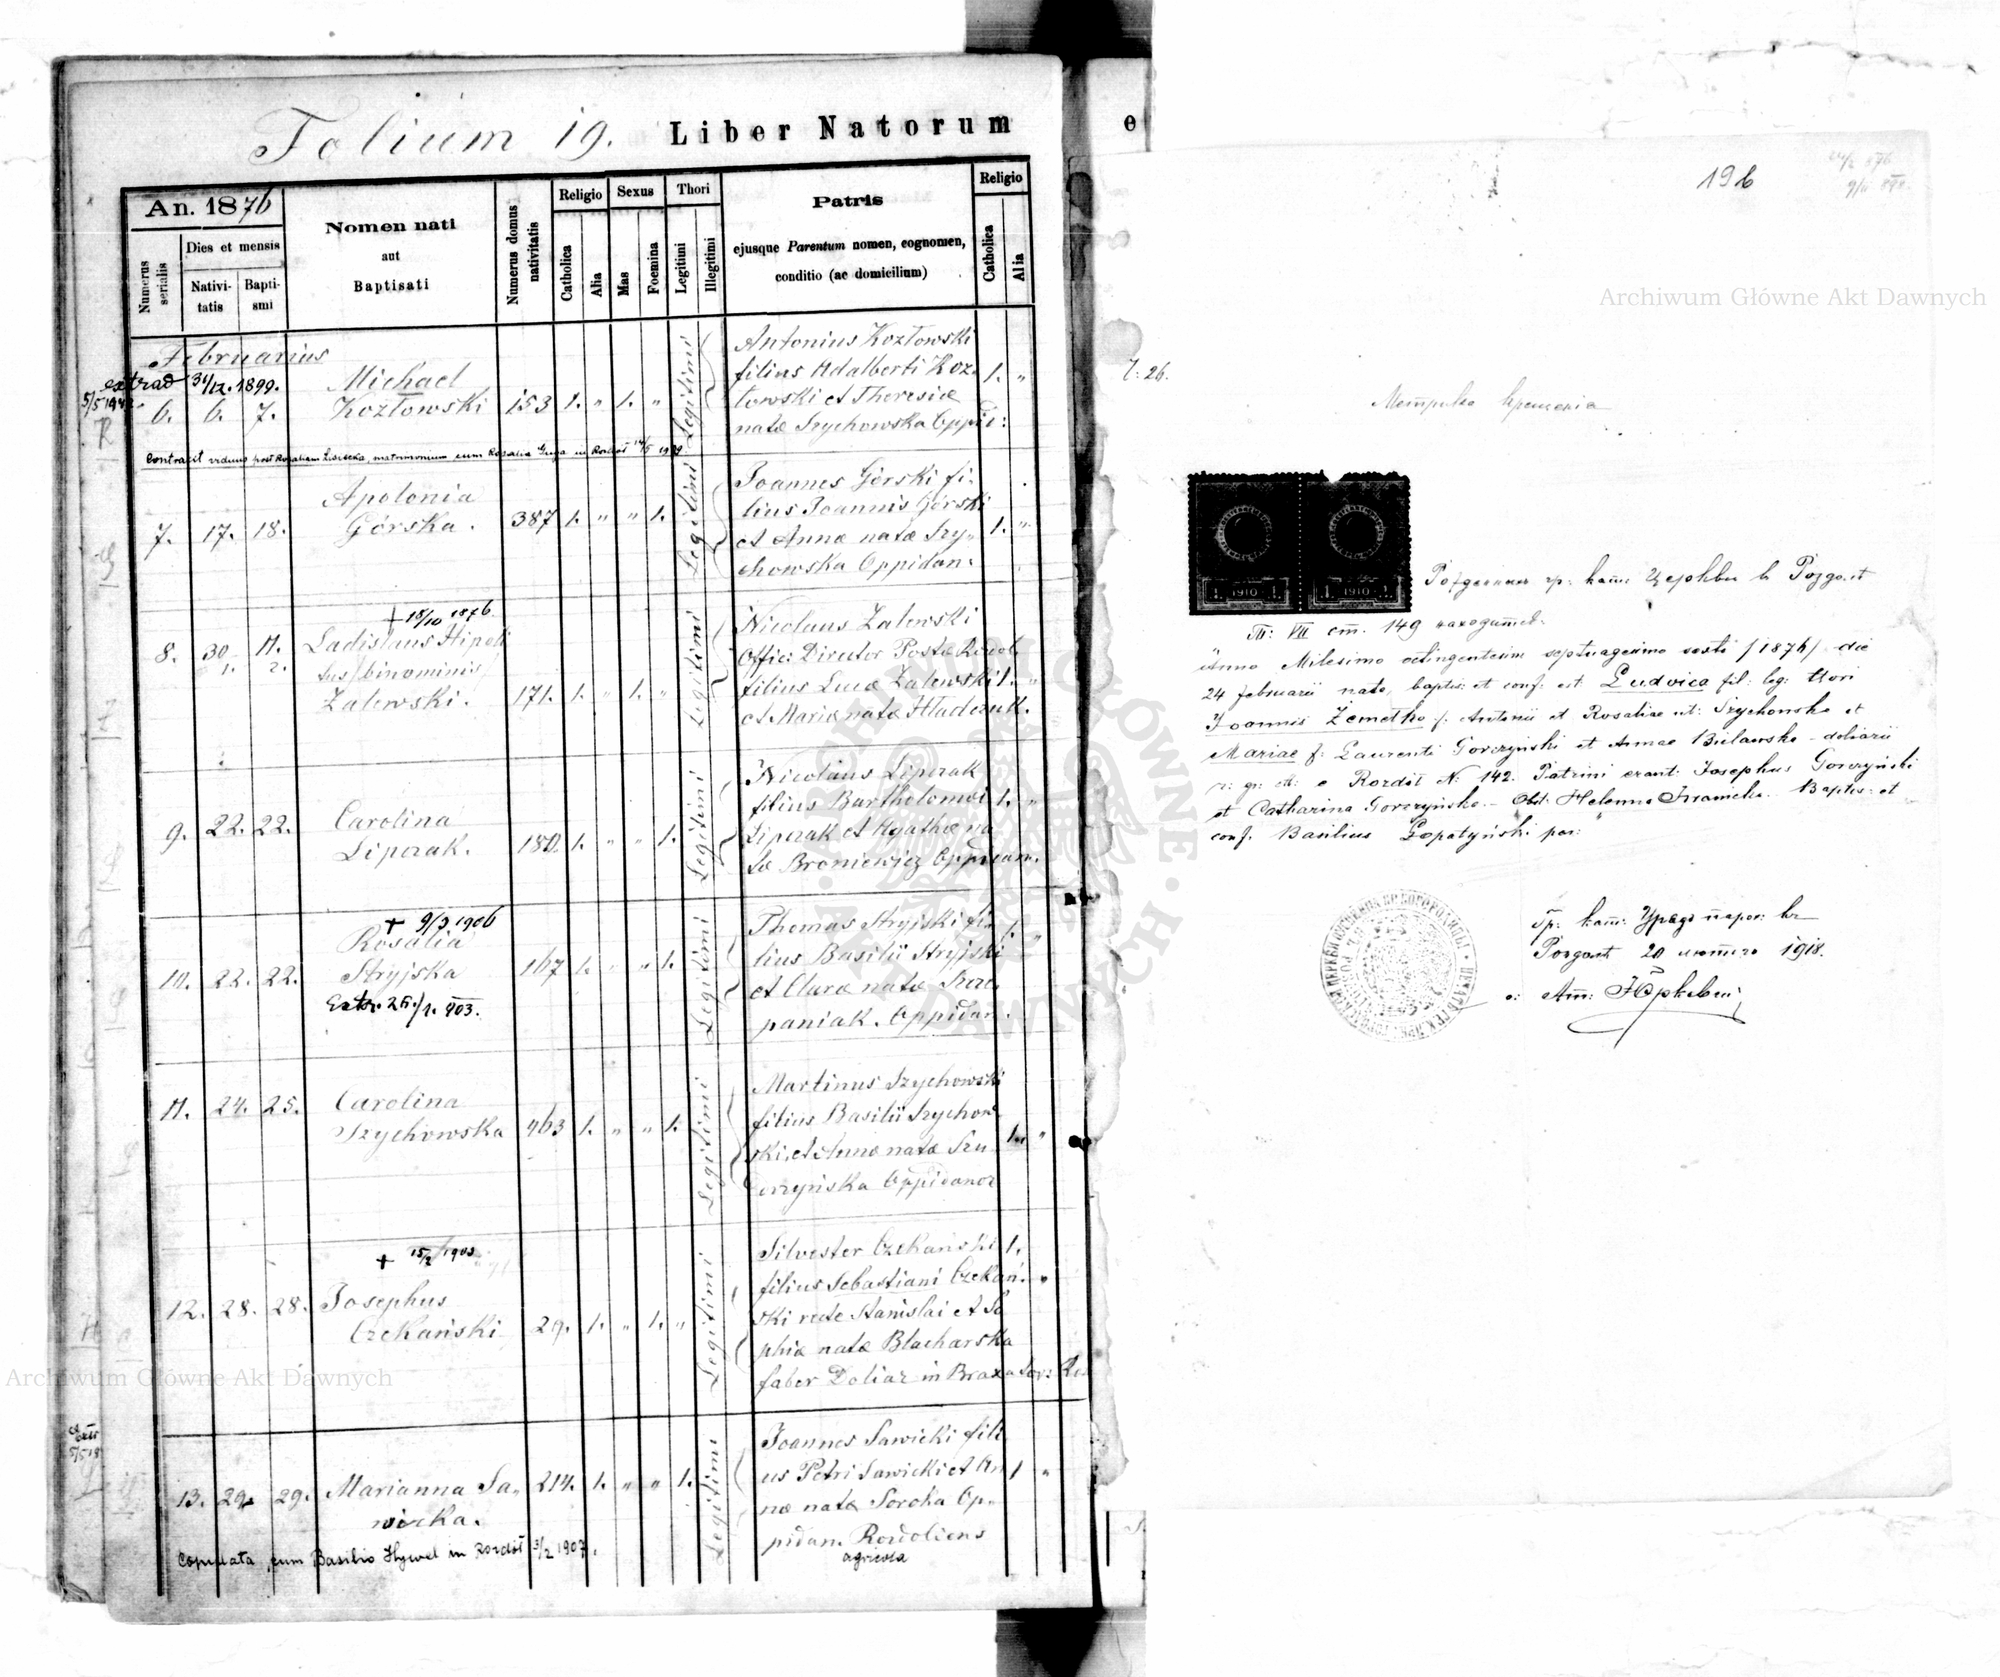 Folium 19. Liber Natorum
An. 1876
Numerus serialis
Dies et mensis
Nativi-
tatis
Bapti-
smi
Nomen nati
aut
Baptisati
Numerus domus
nativitatis
Religio
Catholica
Alia
Sexus
Mas
Foemina
Thori
Legitimi
Illegitimi
Patris
ejusque Parentum nomen, cognomen,
conditio (ac domicilium)
Religio
Catholica
Alia
Februarius
extrad 31/12. 1899.
6. 6. 7.
Michael
Kozłowski
153 1. " 1. "
Legitimi
Antonius Kozłowski
filius Adalberti Koz-
łowski et Theresiæ
natæ Szychowska Oppid:
1. "
Contraxit viduus post Rosaliam Lisiecka, matrimonium cum Rosalia
7. 17. 18.
Apolonia
Górska.
387 1. " " 1.
Legitimi
Joannes Górski fi-
lius Joannis Górski
et Annæ natæ Szy-
chowska Oppidan:
1. "
+ 18/10 1876
8. 30/1. 11./2.
Ladislaus Hipoli
tus /binominis/
Zalewski.
171. 1. " 1. "
Legitimi
Nicolaus Zalewski
Offici Director Postæ Rozdol
filius Lucæ Zalewski
et Mariæ natæ Hladczuk.
1. "
9. 22. 22.
Carolina
Lipczak.
180. 1. " " 1.
Legitimi
Nicolaus Lipczak
filius Bartholomei
Lipczak et Agathæ na
tæ Broniewicz Oppidan.
1. "
+ 9/3 1906
10. 22. 22.
Rosalia
Stryjska
Extr. 25./1. 903.
167 1. " " 1.
Legitimi
Thomas Stryjski fi-
lius Basilii Stryjski
et Claræ natæ Szcze
paniak. Oppidan.
1. "
11. 24. 25.
Carolina
Szychowska
463 1. " " 1.
Legitimi
Martinus Szychowski
filius Basilii Szychow
ski et Annæ natæ
Oppidanor
1. "
+ 15/2 1903
12. 28. 28.
Josephus
Czekański
29. 1. " 1. "
Legitimi
Silvester Czekański
filius Sebastiani Czekań-
ski recte Stanislai et So
phiæ natæ Blacharska
faber Doliar in Braxator:
1. "
13. 29. 29.
Marianna Sa-
wicka.
214. 1. " " 1.
Legitimi
Joannes Sawicki fili
us Petri Sawicki et An
næ natæ Soroka Op-
pidan. Rozdoliens
agricola
1 "
Copulata cum Basilio Hywel in Rozdół 3/2 1907.
196
Ł: 26.
Метрика крещенія
1. 1910 1. 1. 1910 1.
гр: кат: Церкви в Роздолѣ
Т: VII ст. 149 находится:
Anno Milesimo octingentesim septuagesimo sexti /1876/ die
24 februarii nata, baptis: et conf: est Ludvica fil: leg: thori
Joannis Żemełko f: Antonii et Rosaliae nt: Szychowska et
Mariae f: Laurenti Gorczyński et Annae Bielawska - doliarii
r: gr: ctt: e Rozdół N: 142. Patrini erant: Josephus Gorczyński
et Catharina Gorczyńska.- Obst: Helenna Iwanicka. Baptis: et
conf. Basilius Łopatyński par:
Гр: кат: Уряд парох: в
Роздолѣ 20 лютого 1918.
о: Ат:
Archiwum Główne Akt Dawnych
Archiwum Główne Akt Dawnych
ARCHIWUM GŁÓWNE AKT DAWNYCH